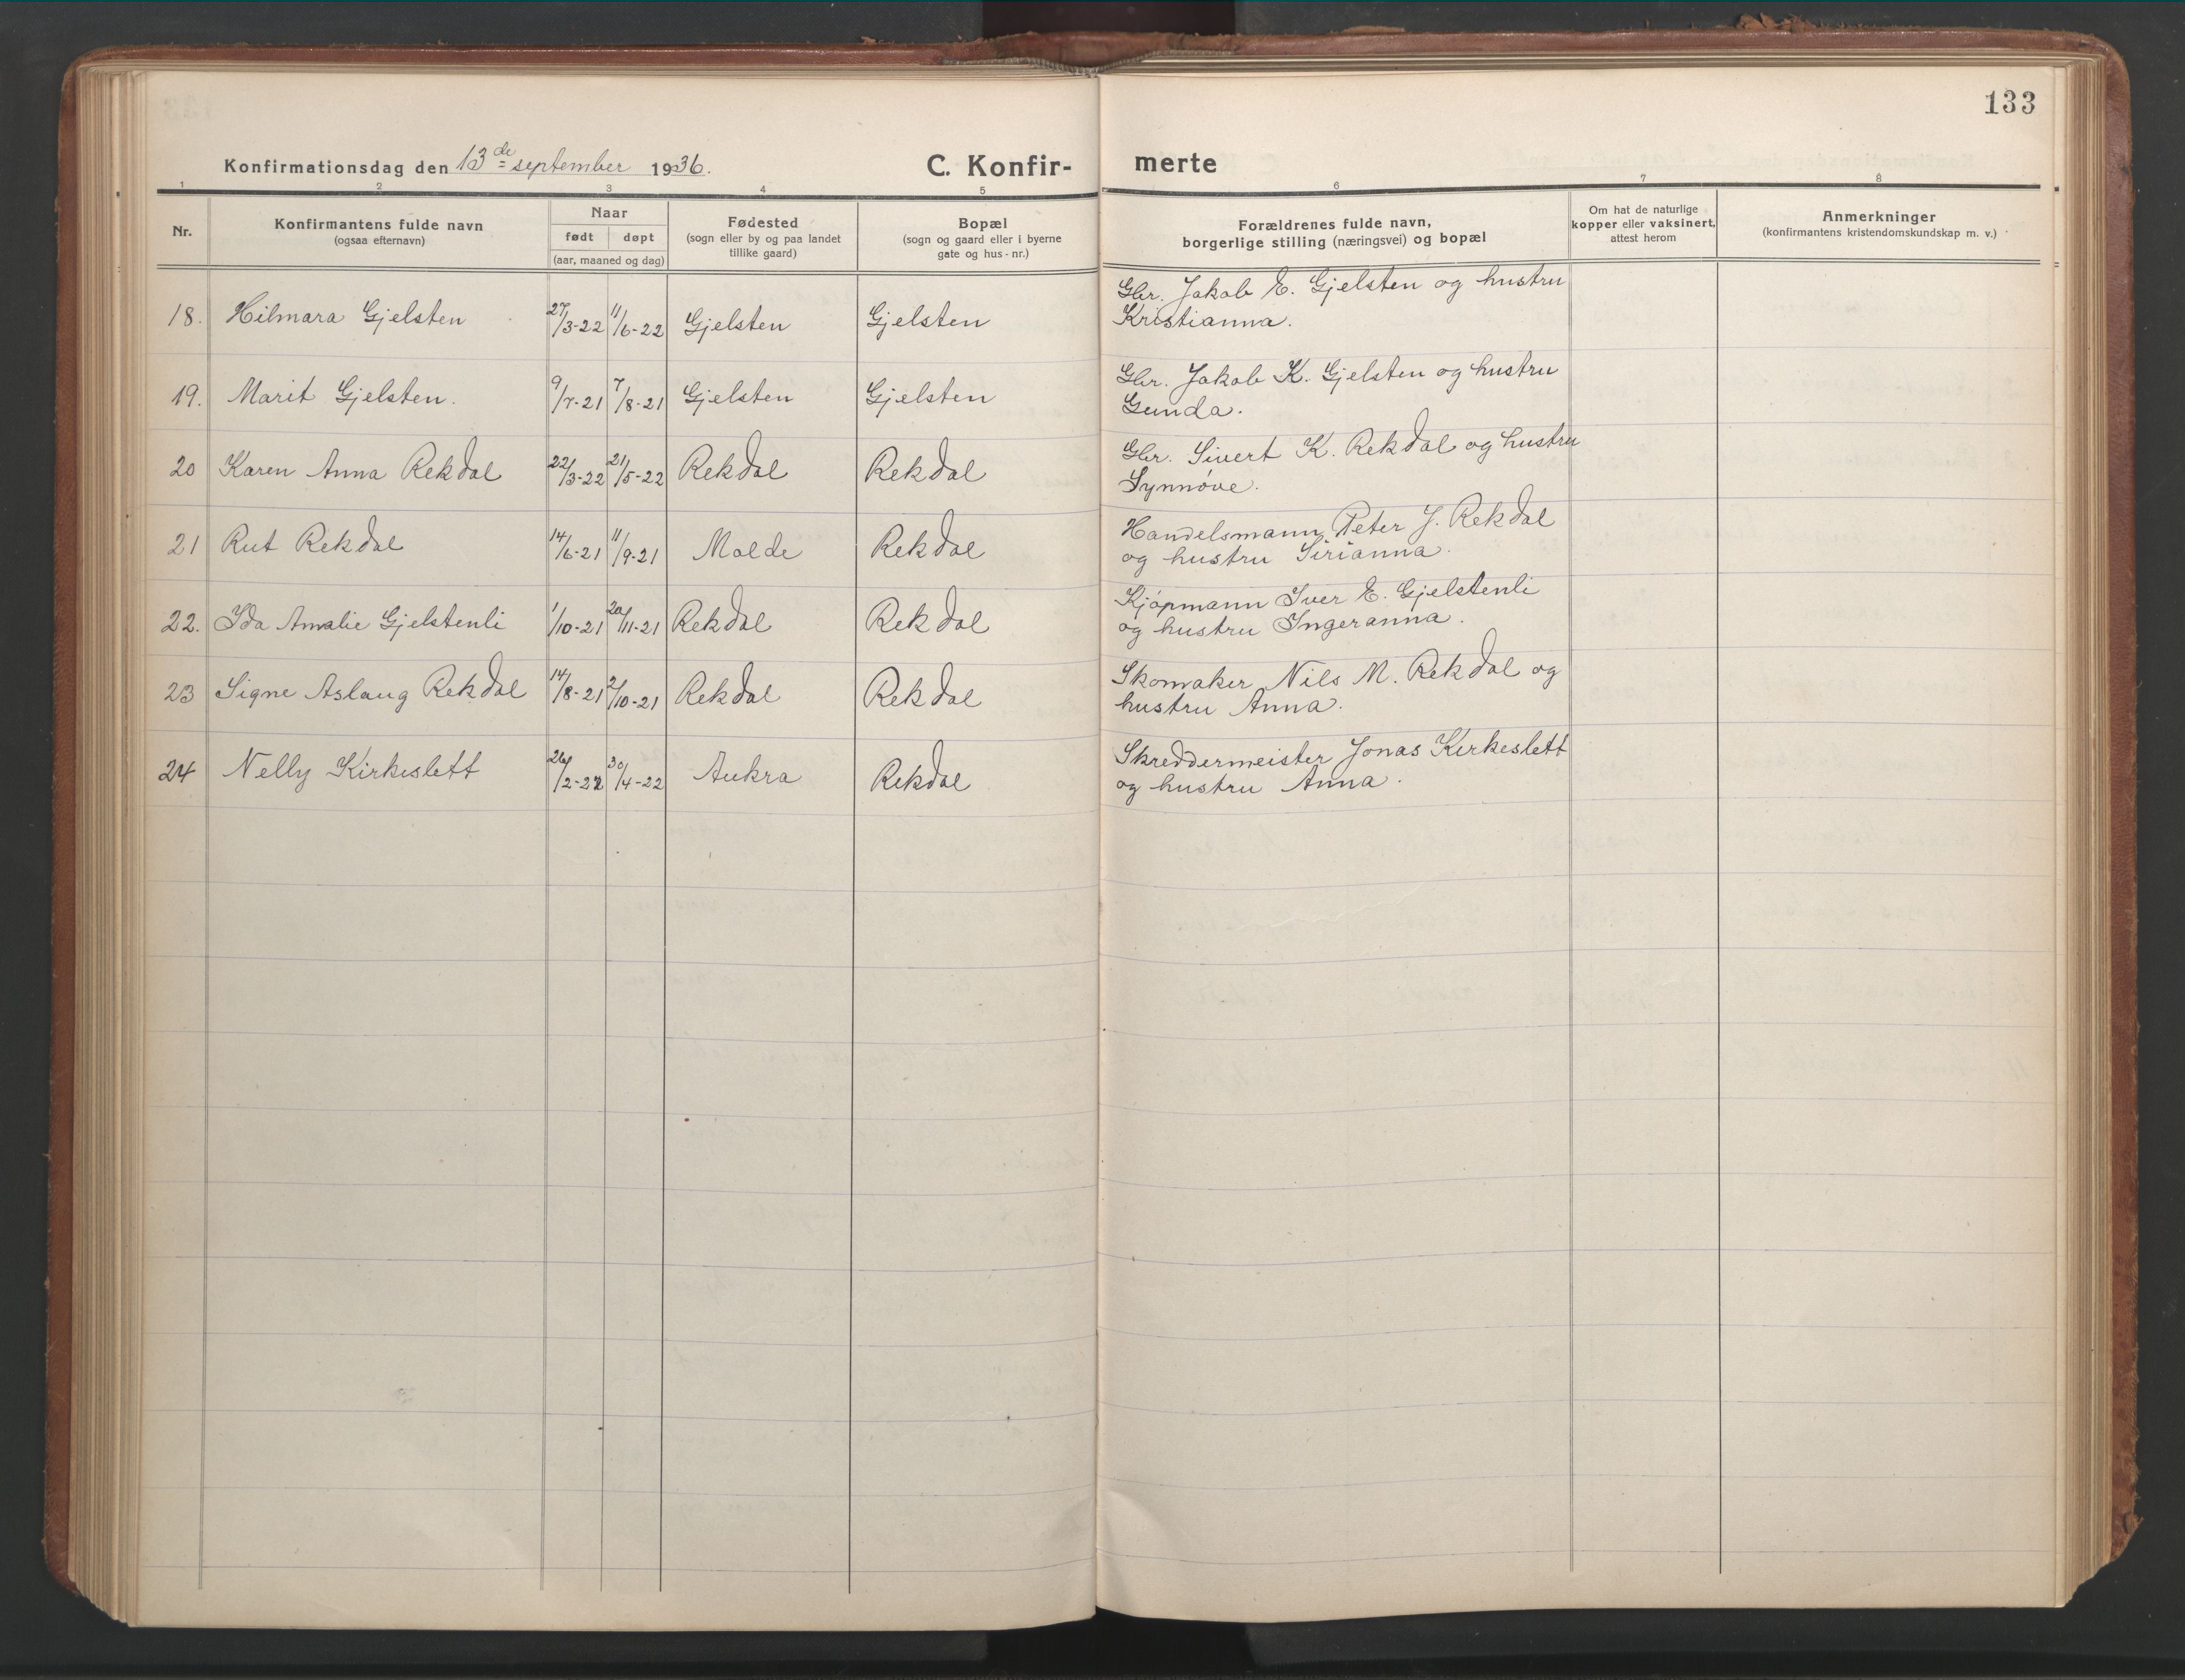 133
Konfirmationsdag den 13de september 1936.
C. Konfir-
merte
1 2 3 4 5 6 7 8
Nr.
Konfirmantens fulde navn
(ogsaa efternavn)
Naar
født døpt
(aar, maaned og dag)
Fødested
(sogn eller by og paa landet
tillike gaard)
Bopæl
(sogn og gaard eller i byerne
gate og hus-nr.)
Forældrenes fulde navn,
borgerlige stilling (næringsvei) og bopæl
Om hat de naturlige
kopper eller vaksinert,
attest herom
Anmerkninger
(konfirmantens kristendomskundskap m. v.)
18. Hilmara Gjelsten 27/3-22 11/6-22 Gjelsten Gjelsten Gbr. Jakob E. Gjelsten og hustru
Kristianna.
19. Marit Gjelsten. 9/7-21 7/8-21 Gjelsten Gjelsten Gbr. Jakob K. Gjelsten og hustru
Gunda.
20 Karen Anna Rekdal 22/3-22 21/5-22 Rekdal Rekdal Gbr. Sivert K. Rekdal og hustru
Synnóve.
21 Rut Rekdal 14/6-21 11/9-21 Molde Rekdal Handelsmann Peter J. Rekdal
og hustru Sirianna.
22. Ida Amalie Gjelstenli 1/10-21 20/11-21 Rekdal Rekdal Kjópmann Iver E. Gjelstenli
og hustru Ingeranna.
23 Signe Aslaug Rekdal 14/8-21 2/10-21 Rekdal Rekdal Skomaker Nils M. Rekdal og
hustru Anna.
24 Nelly Kirkeslett 26/2-22 30/4-22 Aukra Rekdal Skreddermeister Jonas Kirkeslett
og hustru Anna.